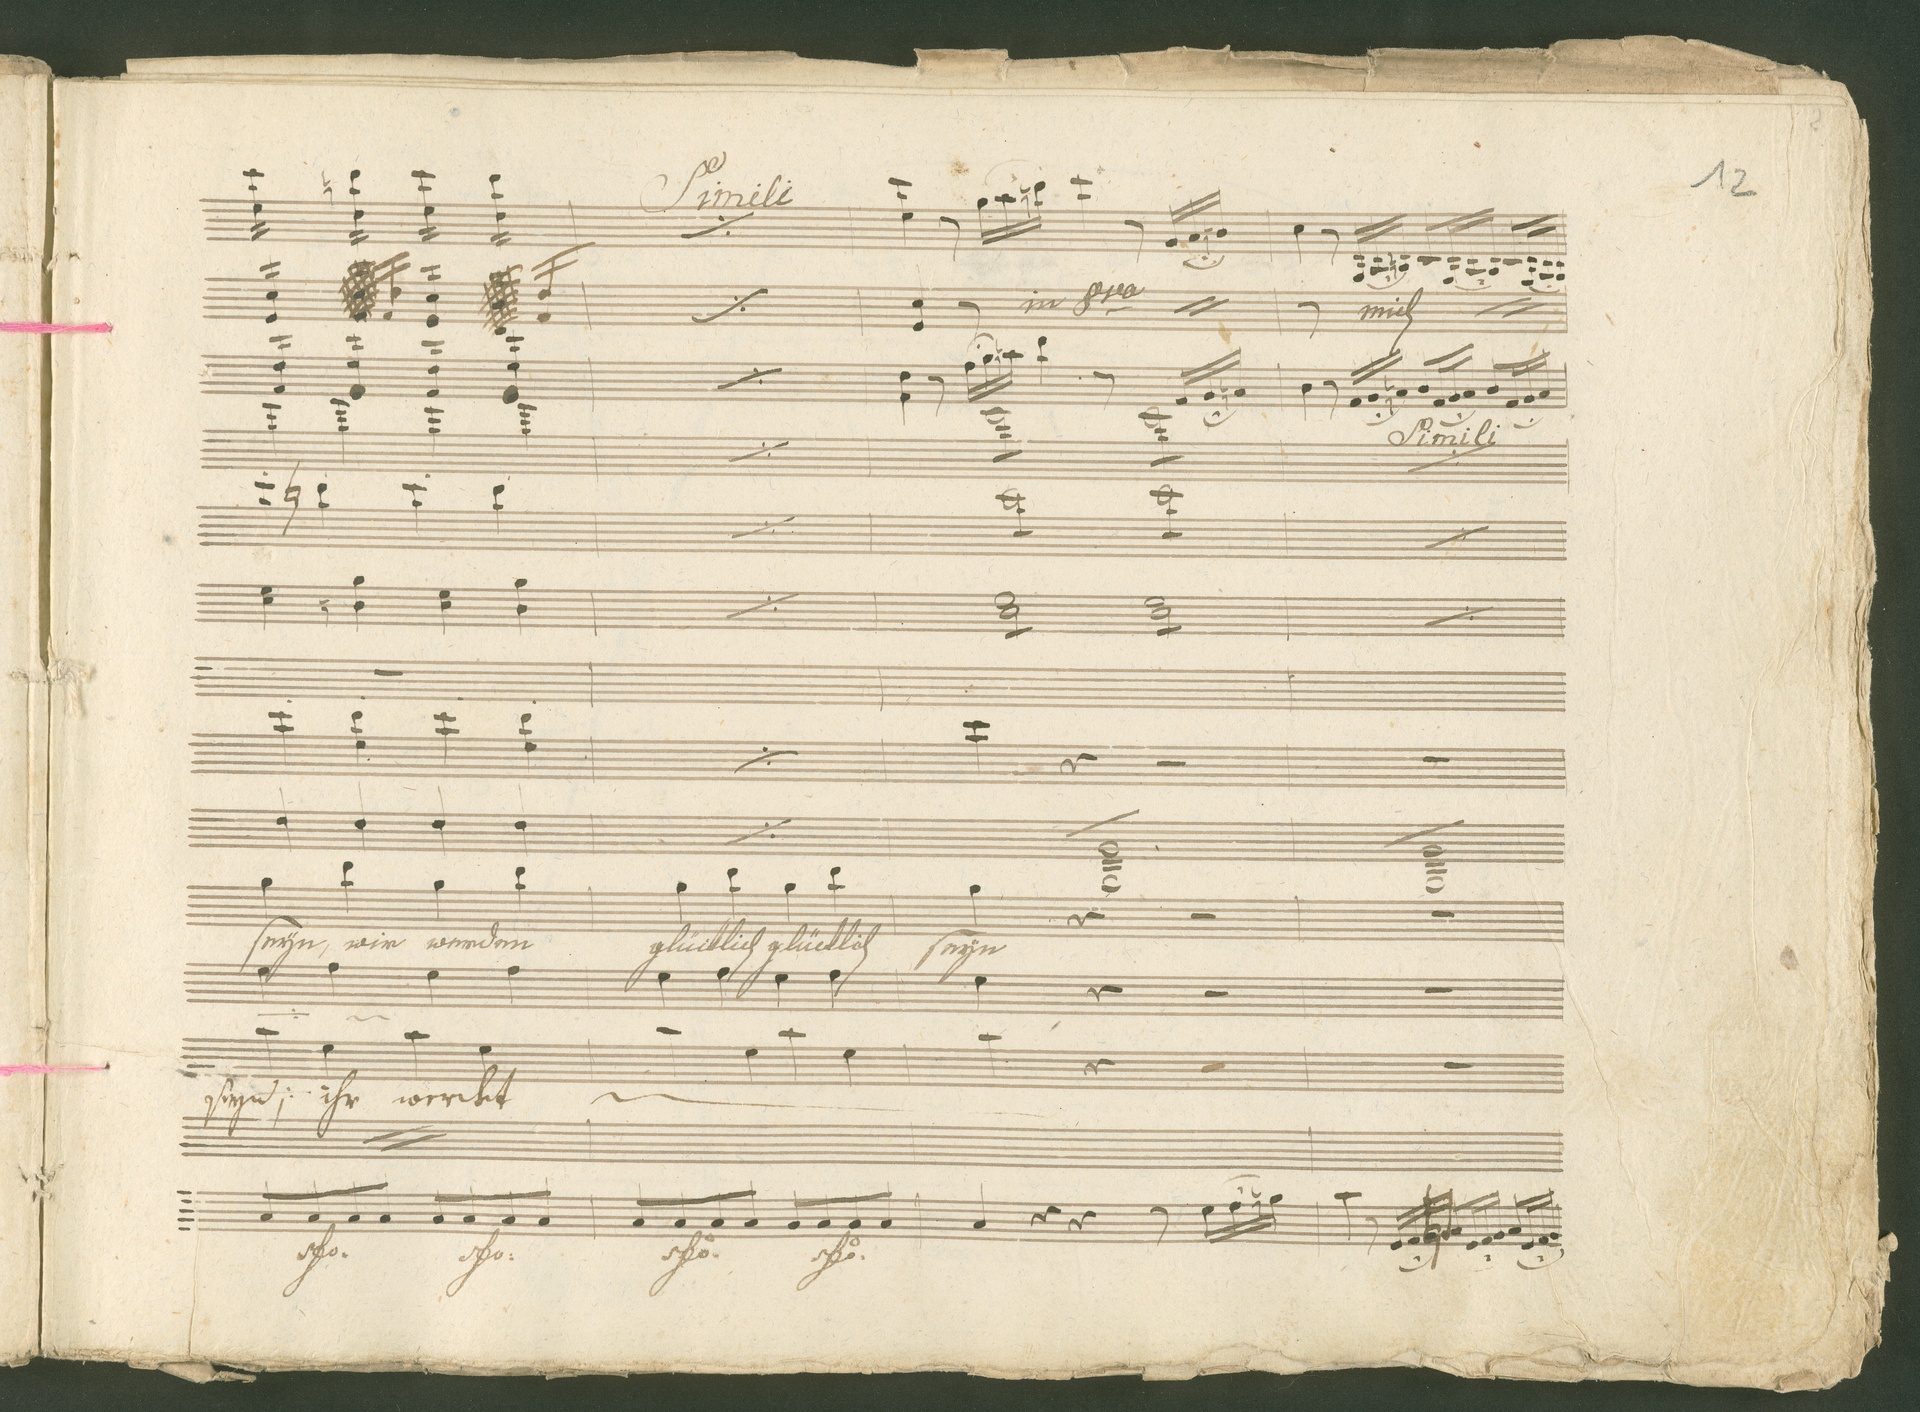 12
Simili
in 8va
Simili
seyn, wir werden glücklich glücklich seyn
seyd; ihr werdet
sfo. sfo: sfo. sfo.